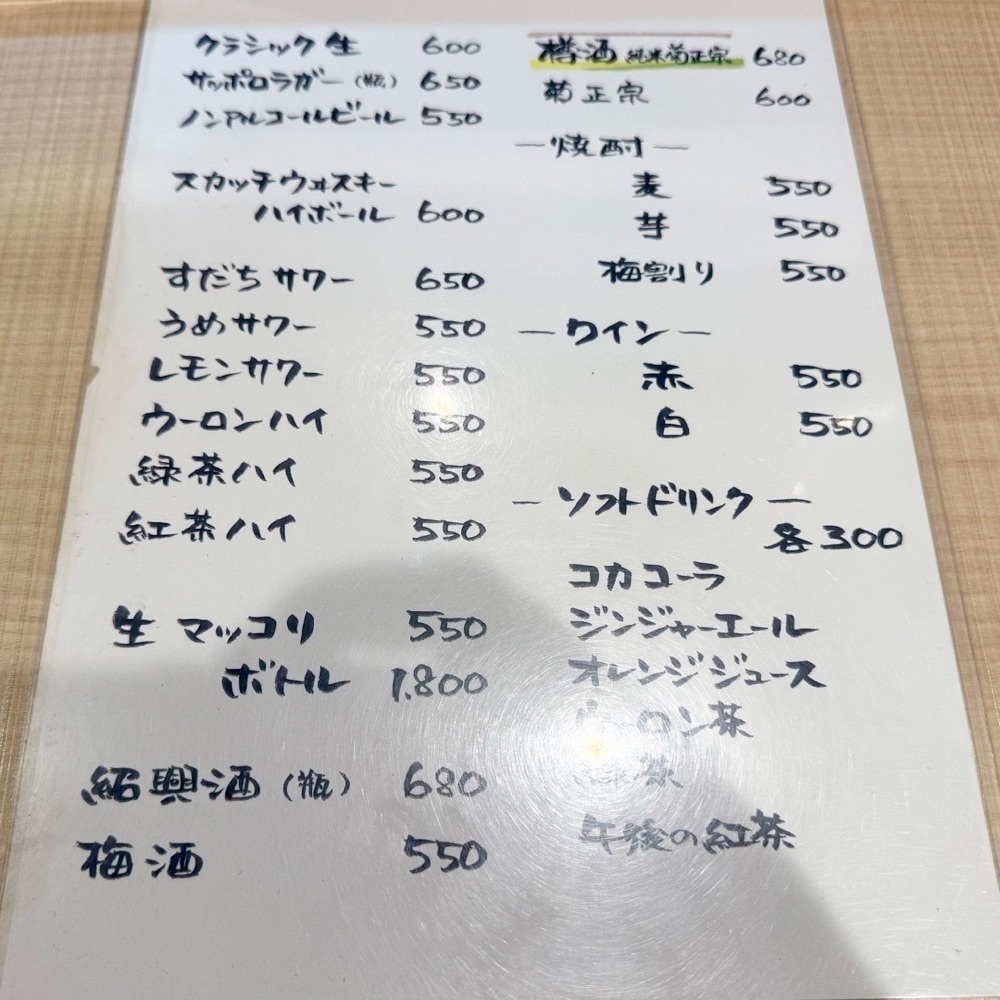 クラシック生 600
サッポロラガー（瓶） 650
ノンアルコールビール 550
スカッチウヰスキー
ハイボール 600
すだちサワー 650
うめサワー 550
レモンサワー 550
ウーロンハイ 550
緑茶ハイ 550
紅茶ハイ 550
生マッコリ 550
ボトル 1,800
紹興酒（瓶） 680
梅酒 550
樽酒 純米菊正宗 680
菊正宗 600
―焼酎―
麦 550
芋 550
梅割り 550
―ワイン―
赤 550
白 550
―ソフトドリンク―
各300
コカコーラ
ジンジャーエール
オレンジジュース
ウーロン茶
緑茶
午後の紅茶